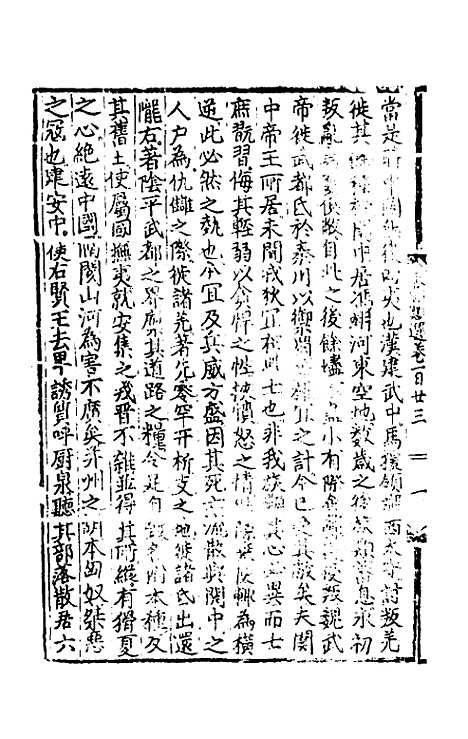 卷一百廿三
一
當是時中國無復四夷也漢建武中馬援領隴西太守討叛羌
徙其餘種於關中居馮翊河東空地數歲之後族類蕃息永初
叛亂自此之後餘燼不盡小有際會輒復侵叛魏武
帝徙武都氐於秦川以禦蜀權宜之計今已受其敝矣夫關
中帝王所居未聞戎狄宜在此土也非我族類其心必異而士
庶翫習侮其輕弱以貪悍之性挾憤怒之情候隙乘便輒為橫
逆此必然之埶也今宜及兵威方盛因其死亡流散與關中之
人戶為仇讎之際徙諸羌著先零罕幵析支之地徙諸氐出還
隴右著陰平武都之界廩其道路之糧令足自致各附本種反
其舊土使屬國撫夷就安集之戎晉不雜並得其所縱有猾夏
之心絕遠中國隔閡山河為害不廣矣并州之胡本匈奴桀惡
之寇也建安中使右賢王去卑誘質呼廚泉聽其部落散居六